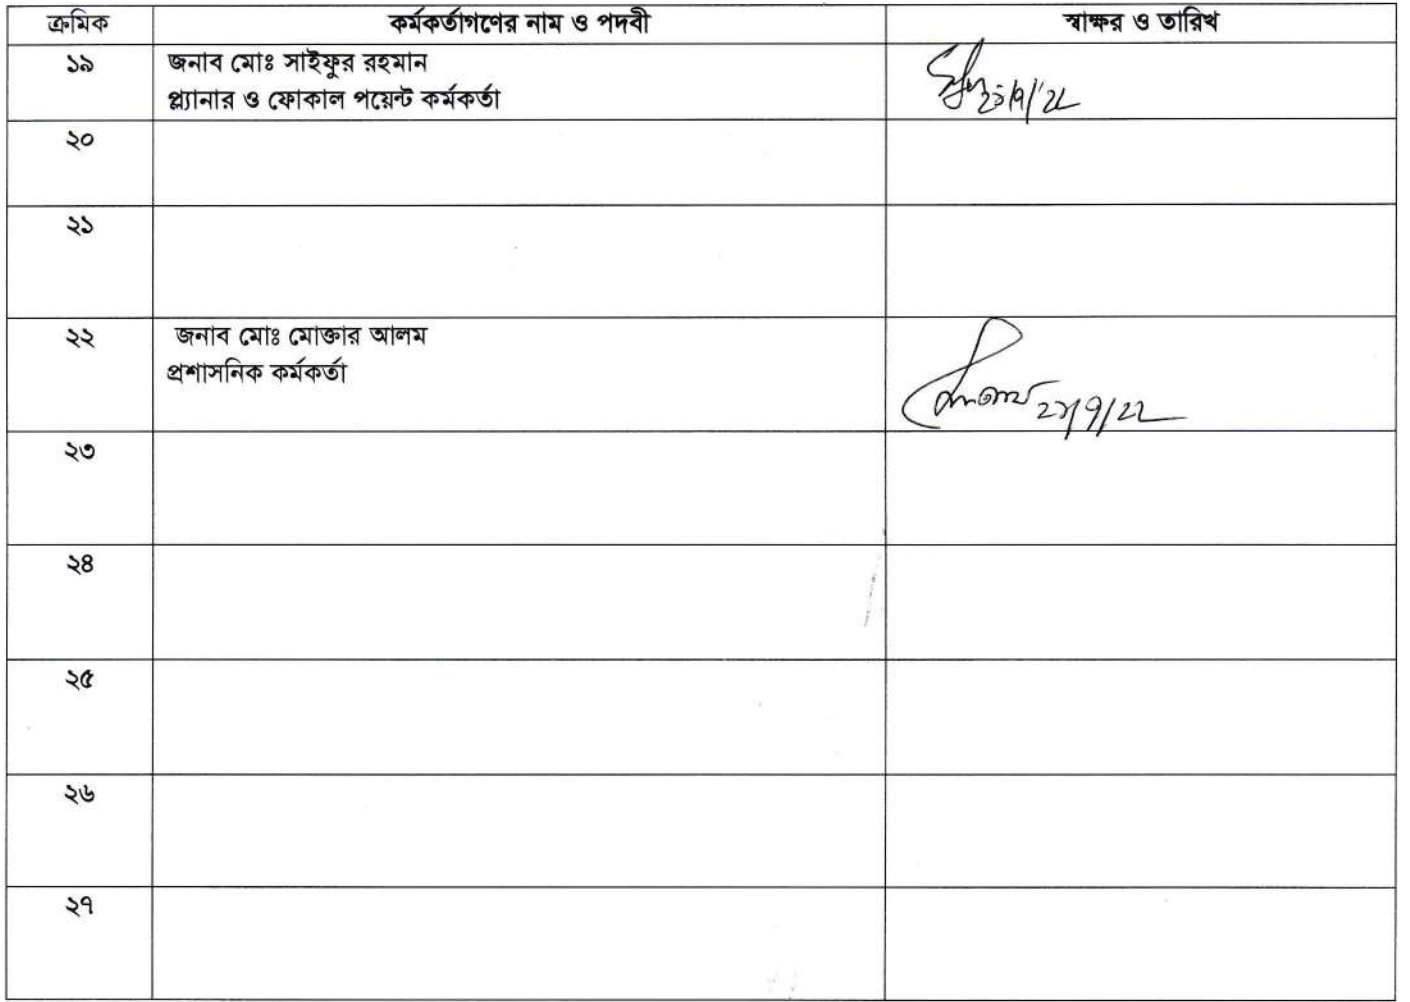 ক্রমিক কর্মকর্তাগণের নাম ও পদবী স্বাক্ষর ও তারিখ
১৯ জনাব মোঃ সাইফুর রহমান
প্ল্যানার ও ফোকাল পয়েন্ট কর্মকর্তা
২০
২১
২২ জনাব মোঃ মোক্তার আলম
প্রশাসনিক কর্মকর্তা
২৩
২৪
২৫
২৬
২৭